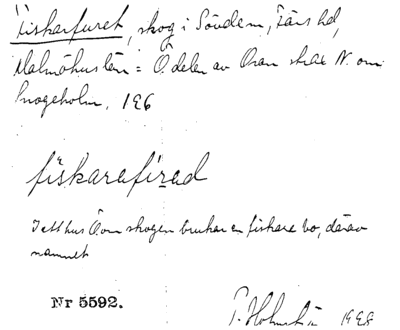 Fiskarfuret, skog i Sövdem, Färs hd,
Malmöhus län = Ö. delen av Oran strax N. om
Snogeholm. 196
fiskarefirad
I ett hus Ö om skogen brukar en fiskare bo, därav
namnet
Nr 5592.